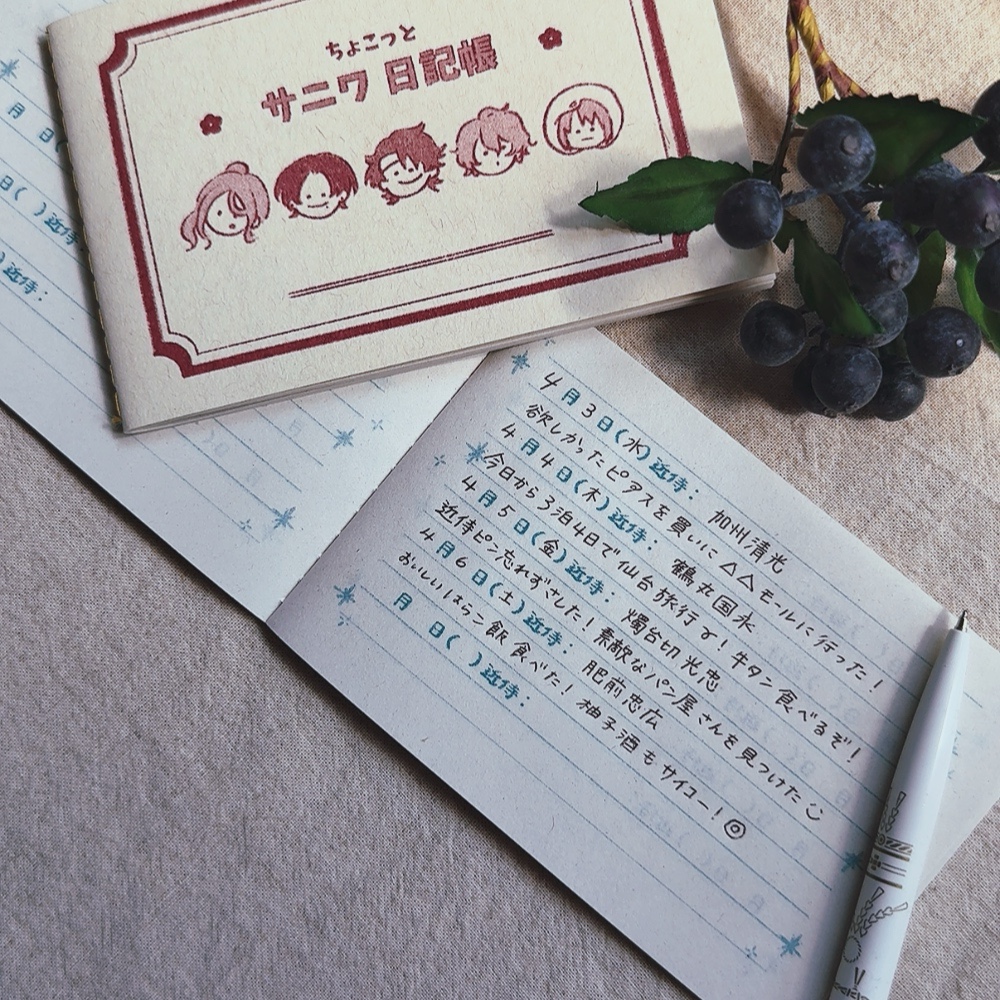 ちょこっと
サニワ 日記帳
月 日
日( )近侍:
)近侍:
4月3日(水)近侍: 加州清光
欲しかったピアスを買いに△△モールに行った!
4月4日(木)近侍: 鶴丸国永
今日から3泊4日で仙台旅行♈!牛タン食べるぞ!
4月5日(金)近侍: 燭台切光忠
近侍ピン忘れずさした!素敵なパン屋さんを見つけた☺
4月6日(土)近侍: 肥前忠広
おいしいはらこ飯食べた!柚子酒もサイコー!◎
月 日( )近侍: